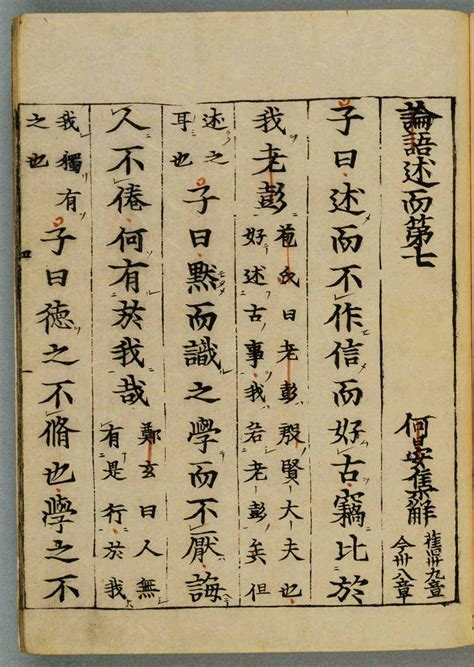 論語述而第七 何晏集解 舊卅九章
今卅八章
子曰述而不作信而好古竊比於
我老彭 苞氏曰老彭殷賢大夫也
好述古事我若老彭矣但
述之
耳也
子曰默而識之學而不厭誨
人不倦何有於我哉 鄭玄曰人無
有是行於我
我獨有
之也
子曰德之不脩也學之不